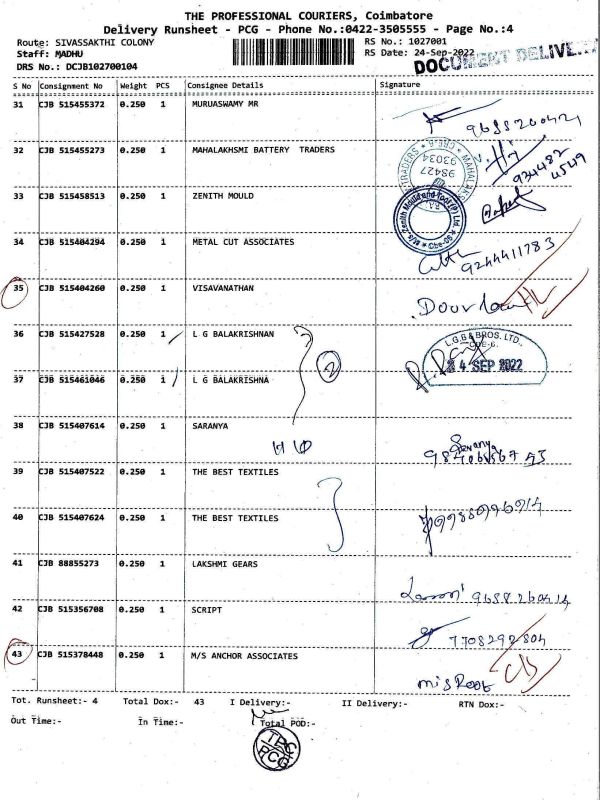 THE PROFESSIONAL COURIERS, Coimbatore
Delivery Runsheet - PCG - Phone No.:0422-3505555 - Page No.:4
Route: SIVASSAKTHI COLONY RS No.: 1027001
Staff: MADHU RS Date: 24-Sep-2022
DRS No.: DCJB102700104 DOCUMENT DELIVE
S No Consignment No Weight PCS Consignee Details Signature
31 CJB 515455372 0.250 1 MURUASWAMY MR
32 CJB 515455273 0.250 1 MAHALAKHSMI BATTERY TRADERS
TRADERS * CBE-6 * MAHALAKS
93034
98427
33 CJB 515458513 0.250 1 ZENITH MOULD
M/s. Zenith Mould and Tool (P) Ltd. * Cbe-06 *
34 CJB 515404294 0.250 1 METAL CUT ASSOCIATES
9244411783
35 CJB 515404260 0.250 1 VISAVANATHAN
36 CJB 515427528 0.250 1 L G BALAKRISHNAN
2
L.G.B & BROS. LTD.,
CBE-6.
24 SEP 2022
37 CJB 515461046 0.250 1 L G BALAKRISHNA
38 CJB 515407614 0.250 1 SARANYA
39 CJB 515407522 0.250 1 THE BEST TEXTILES
40 CJB 515407624 0.250 1 THE BEST TEXTILES
41 CJB 88855273 0.250 1 LAKSHMI GEARS
42 CJB 515356708 0.250 1 SCRIPT
7708292804
43 CJB 515378448 0.250 1 M/S ANCHOR ASSOCIATES
Tot. Runsheet:- 4 Total Dox:- 43 I Delivery:- II Delivery:- RTN Dox:-
Out Time:- In Time:- Total POD:-
TPC
PCG